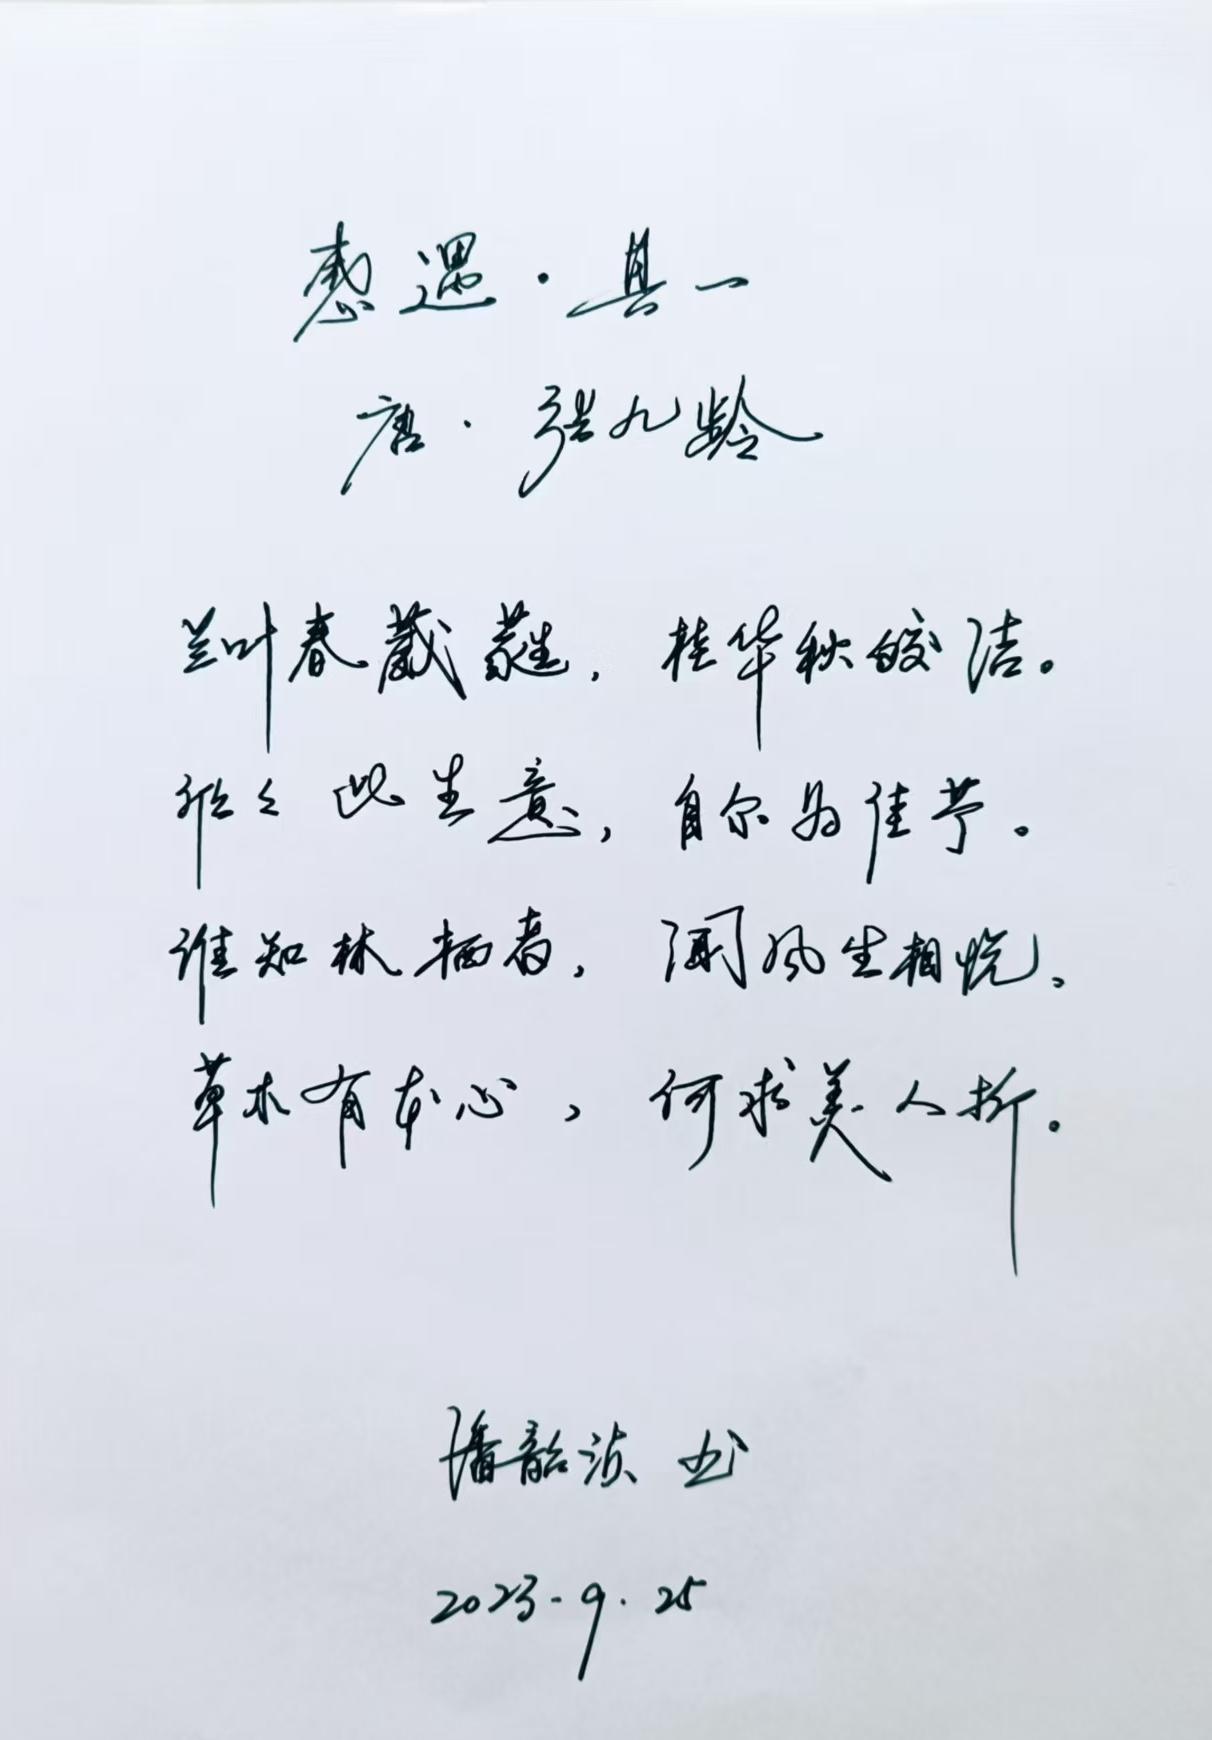 感遇·其一
唐·张九龄
兰叶春葳蕤，桂华秋皎洁。
欣々此生意，自尔为佳节。
谁知林栖者，闻风坐相悦、
草木有本心，何求美人折。
潘韶 书
2023.9.25